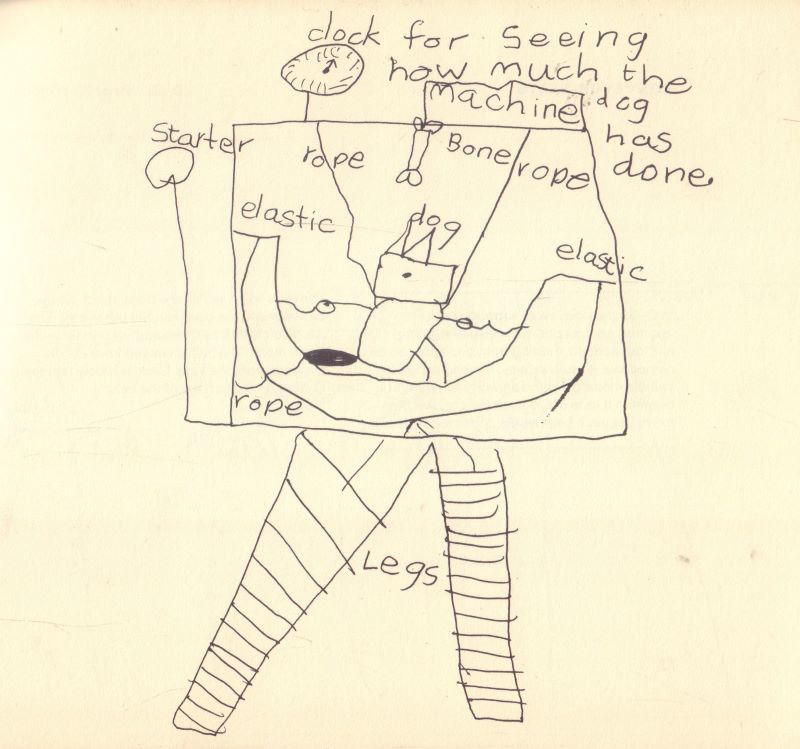 clock for seeing
how much the
machine dog
has
done.
Starter
rope
Bone
rope
elastic
dog
elastic
rope
Legs